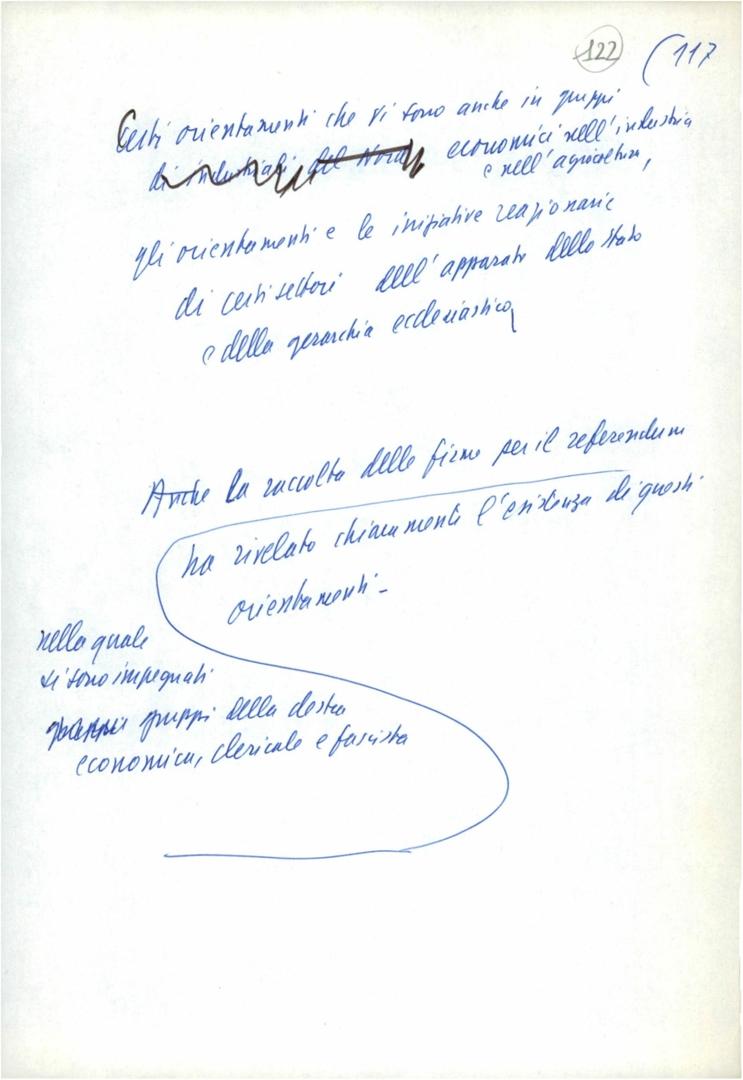 122
(117
Certi orientamenti che vi sono anche in gruppi
di industriali del Nord economici nell'industria
e nell'agricoltura,
gli orientamenti e le iniziative reazionarie
di certi settori dell'apparato dello Stato
e della gerarchia ecclesiastica,
Anche la raccolta delle firme per il referendum
ha rivelato chiaramente l'esistenza di questi
orientamenti -
nella quale
si sono impegnati
gruppi gruppi della destra
economica, clericale e fascista